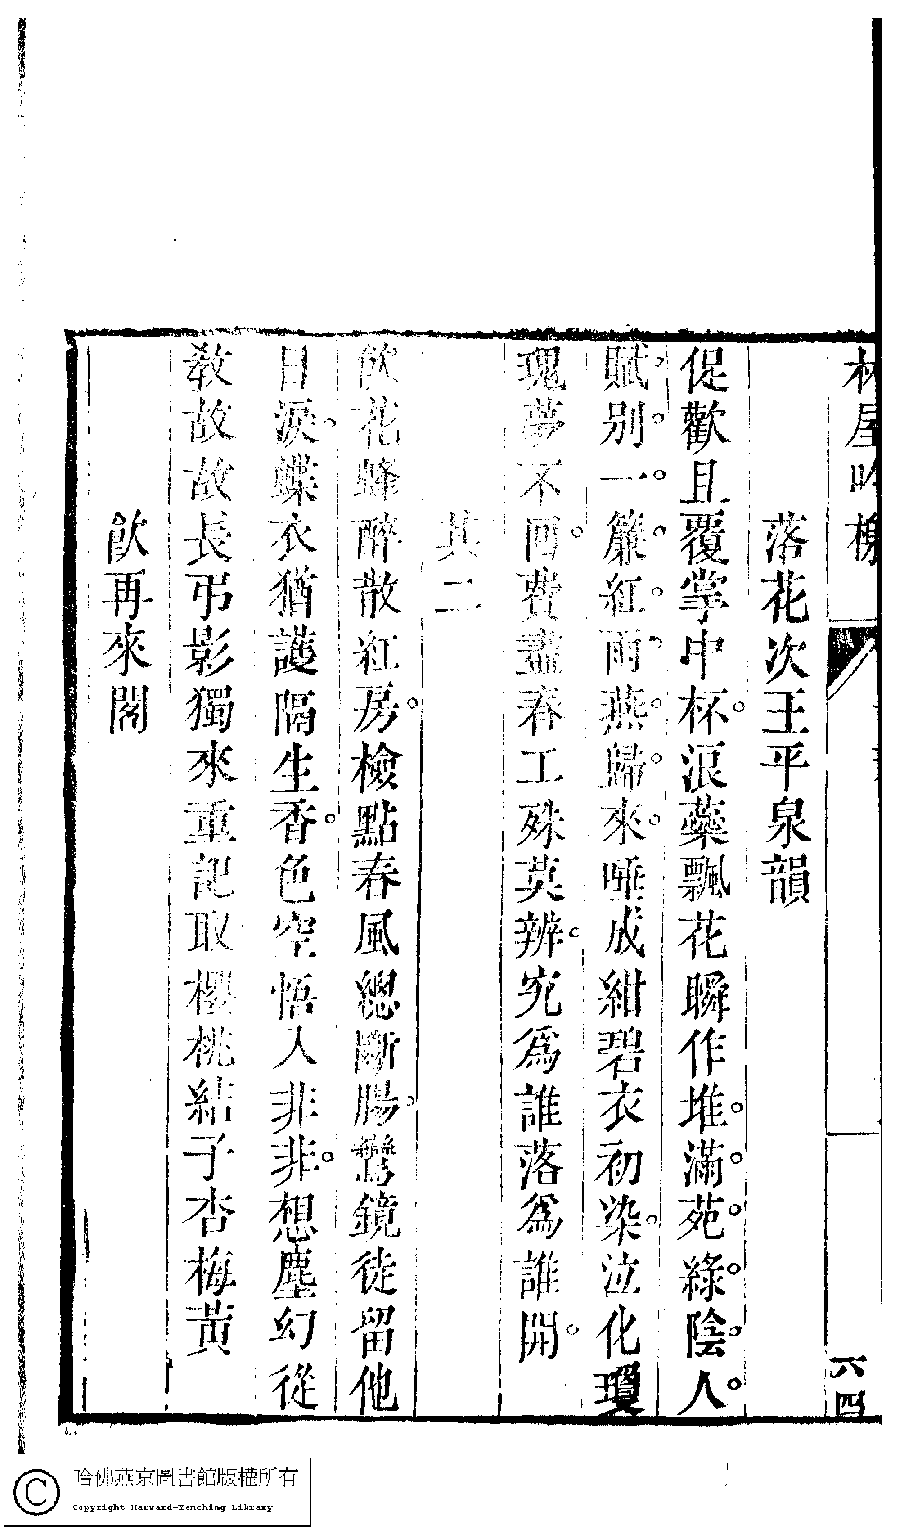 林屋吟榭
六四
落花次王平泉韻
促歡且覆掌中杯浪藥飄花瞬作堆滿苑綠陰人
賦別一簾紅雨燕歸來唾成紺碧衣初染泣化瓊
瑰夢不回費盡春工殊莫辨究爲誰落爲誰開
其二
飲花蜂醉散紅房檢點春風總斷腸鸞鏡徒留他
日淚蝶衣猶護隔生香色空悟人非非想塵幻從
敎故故長弔影獨來重記取櫻桃結子杏梅黃
飲再來閣
哈佛燕京圖書館版權所有
Copyright Harvard-Yenching Library